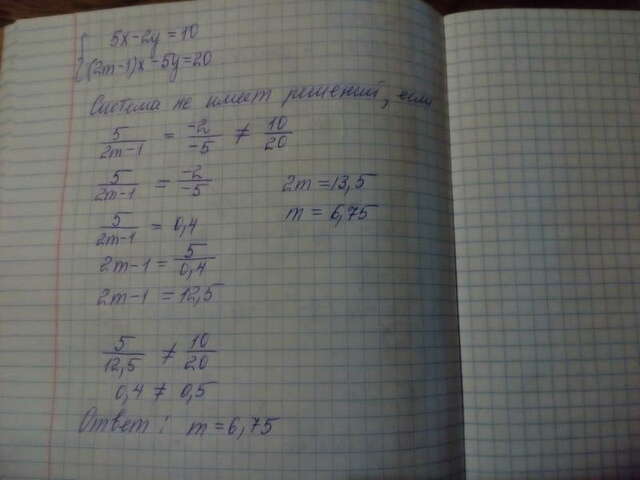 5x-2y=10
(2m-1)x-5y=20
Система не имеет решений, если
5/(2m-1) = -2/-5 ≠ 10/20
5/(2m-1) = -2/-5
5/(2m-1) = 0,4
2m-1 = 5/0,4
2m-1 = 12,5
2m = 13,5
m = 6,75
5/12,5 ≠ 10/20
0,4 ≠ 0,5
Ответ: m = 6,75